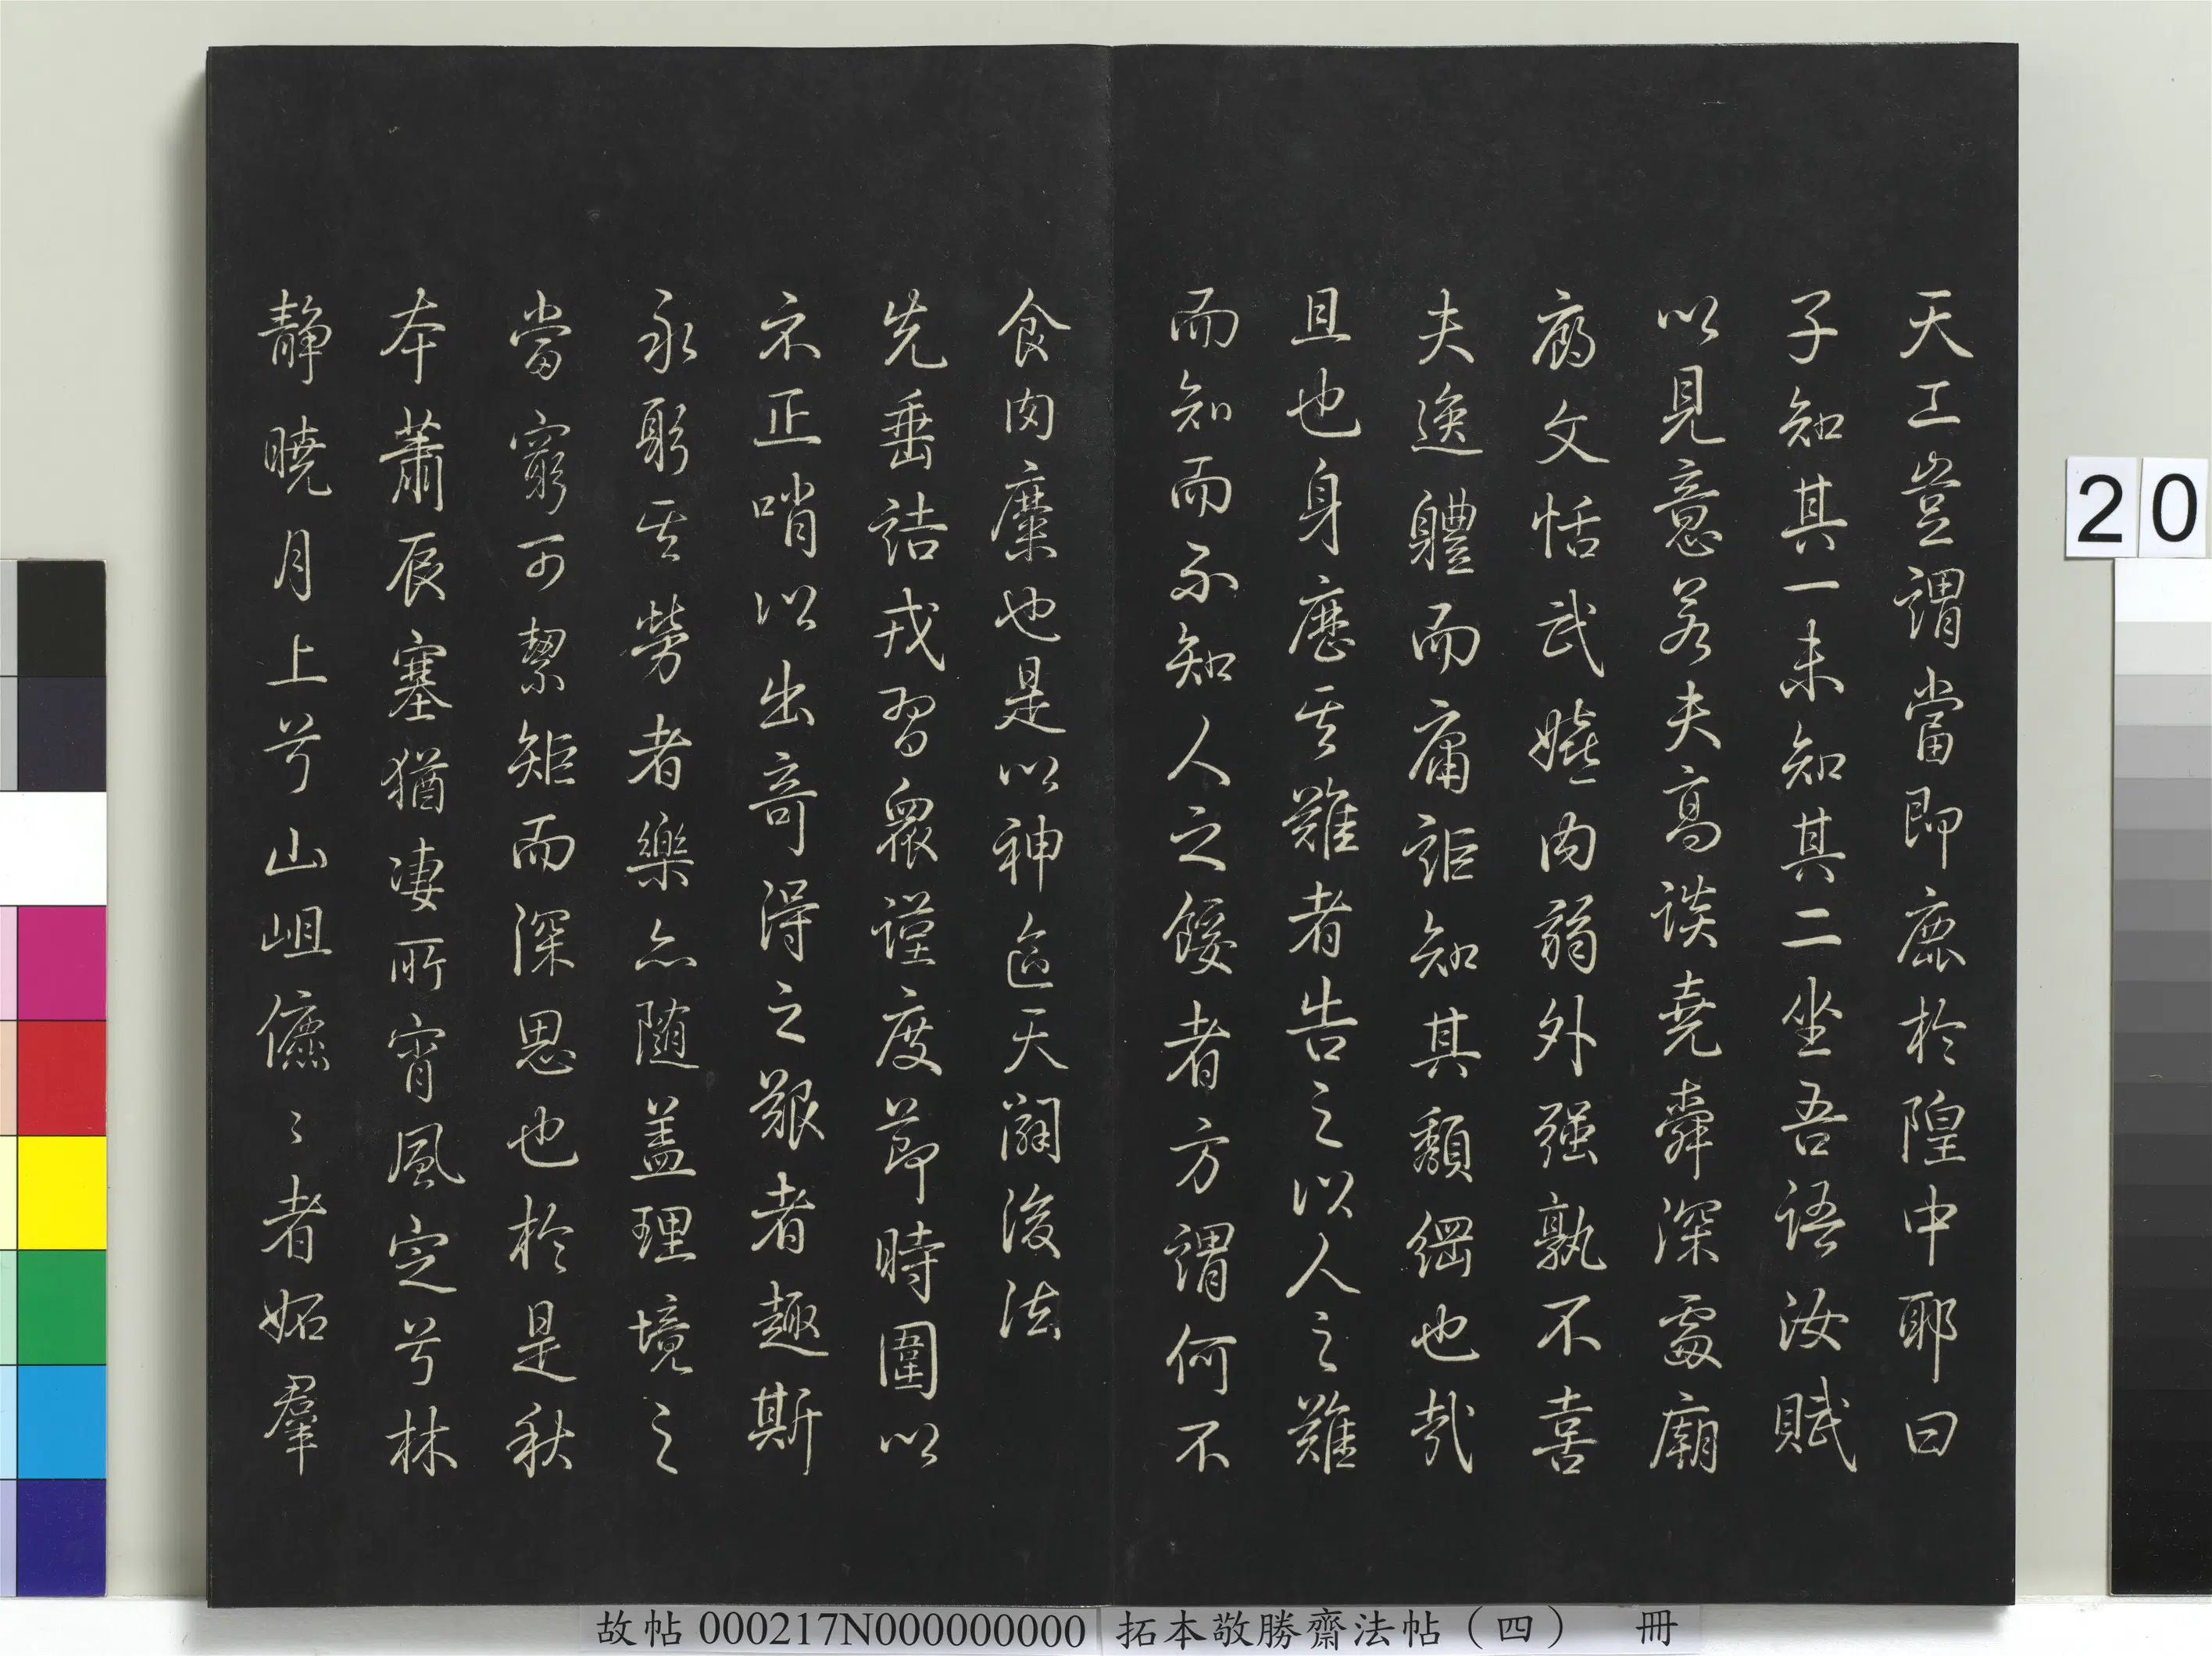 天工豈謂當即鹿於隍中耶曰
子知其一未知其二坐吾語汝賦
以見意若夫高談堯舜深處廟
廊文恬武嬉內弱外強孰不喜
夫逸體而庸詎知其頹綱也哉
且也身歷其難者告之以人之難
而知而不知人之餒者方謂何不
食肉糜也是以神迄天閑後法
先垂詰戎習眾謹度節時圍以
示正哨以出奇得之艱者趣斯
永躬其勞者樂亦隨蓋理境之
當窮可絜矩而深思也於是秋
本蕭辰塞猶淒所宵風定兮林
靜曉月上兮山岨儦〻者始羣
20
故帖 000217N000000000 拓本敬勝齋法帖（四） 冊